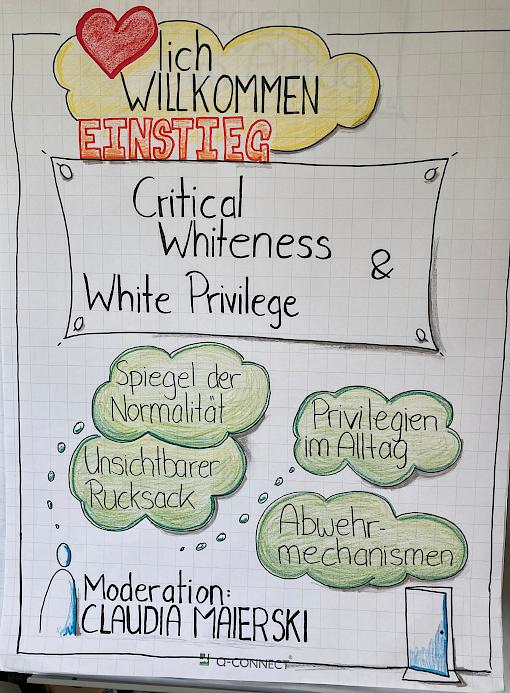 lich
WILLKOMMEN
EINSTIEG
Critical
Whiteness &
White Privilege
Spiegel der
Normalität
Unsichtbarer
Rucksack
Privilegien
im Alltag
Abwehr-
mechanismen
Moderation:
CLAUDIA MAIERSKI
a-CONNECT®